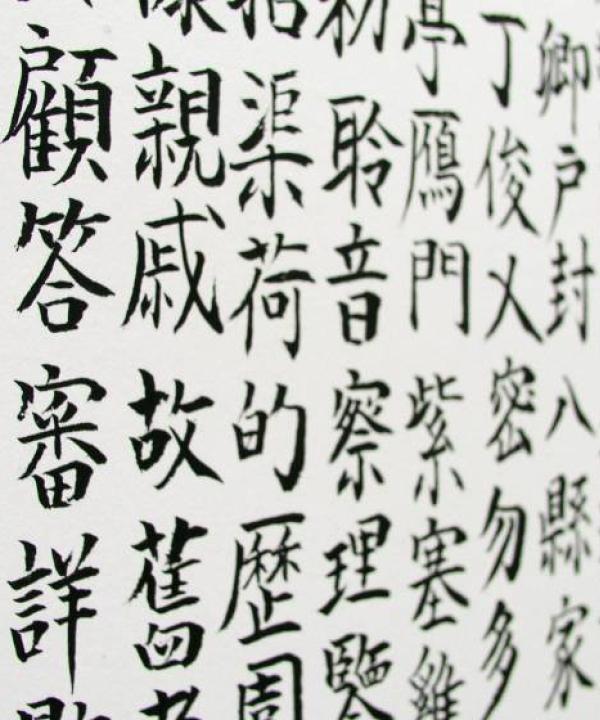 卿戶封八縣家
丁俊乂密勿多
亭鴈門紫塞雞
聆音察理
招渠荷的歷園
親戚故舊
顧答審詳